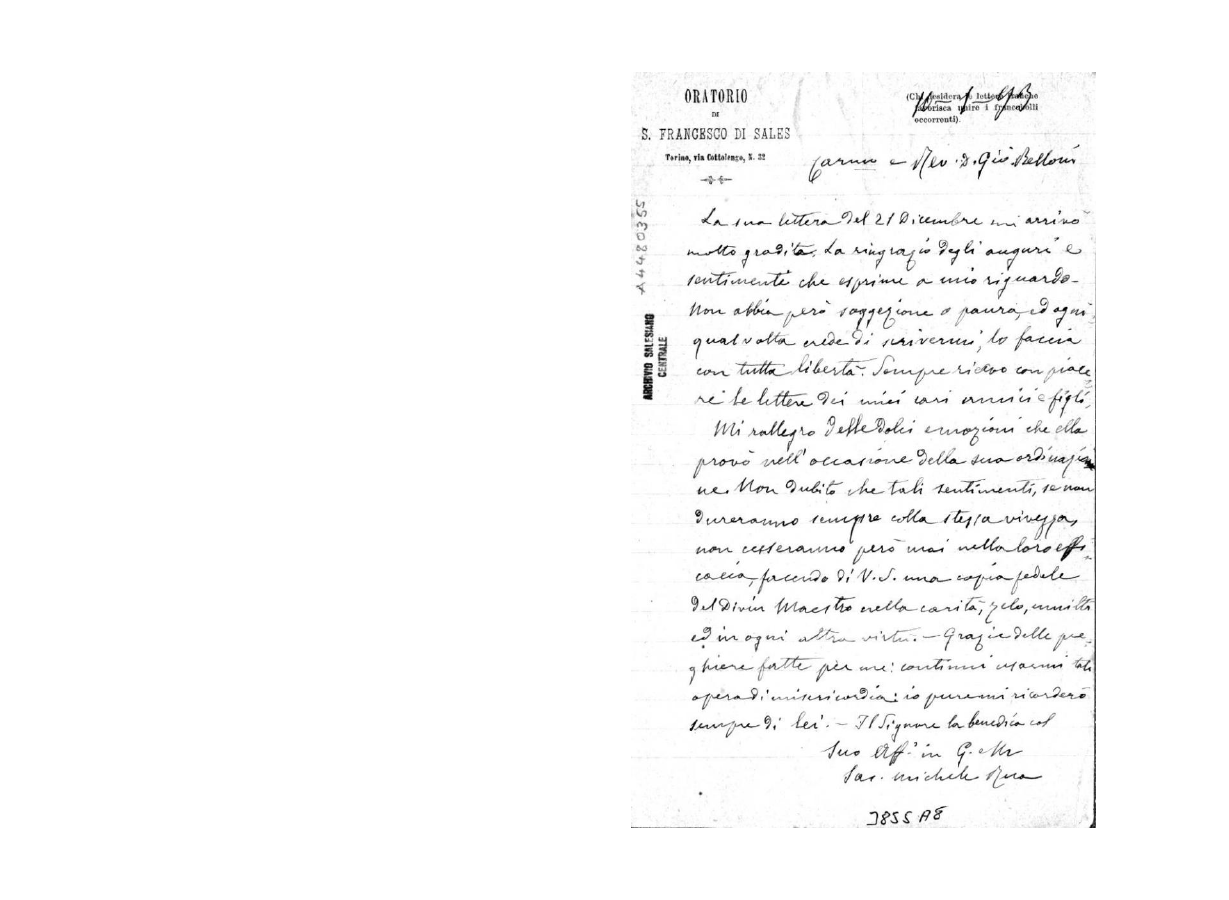 ORATORIO
DI
S. FRANCESCO DI SALES
Torino, via Cottolengo, N. 32
(Chi desidera le lettere franche
favorisca unire i francobolli
occorrenti).
Carmo e Rev. D. Gio Belloni
A4480355
ARCHIVIO SALESIANO
CENTRALE
La sua lettera del 21 Dicembre mi arrivò
molto gradita. La ringrazio degli auguri e
sentimenti che esprime a mio riguardo.
Non abbia però soggezione o paura, ed ogni
qual volta crede di scrivermi, lo faccia
con tutta libertà. Sempre ricevo con piace
re le lettere dei miei cari amici e figli.
Mi rallegro delle dolci emozioni che ella
provò nell'occasione della sua ordinazio
ne. Non dubito che tali sentimenti, se non
dureranno sempre colla stessa vivezza,
non cesseranno però mai nella loro effi-
cacia, facendo di V. S. una copia fedele
del Divin Maestro nella carità, zelo, umiltà
ed in ogni altra virtù. — Grazie delle pre-
ghiere fatte per me: continui usarmi tale
opera di misericordia: io pure mi ricorderò
sempre di Lei. — Il Signore la benedica col
Suo Aff.° in G. e M.
Sac. Michele Rua
3855 A8